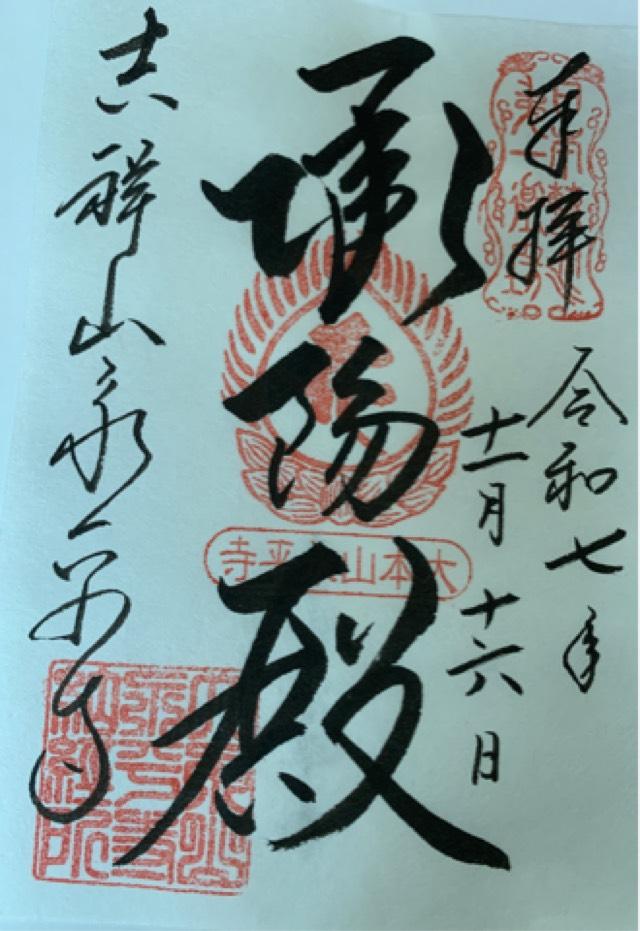 奉拝
令和七年
十一月十六日
承陽殿
大本山永平寺
吉祥山永平寺